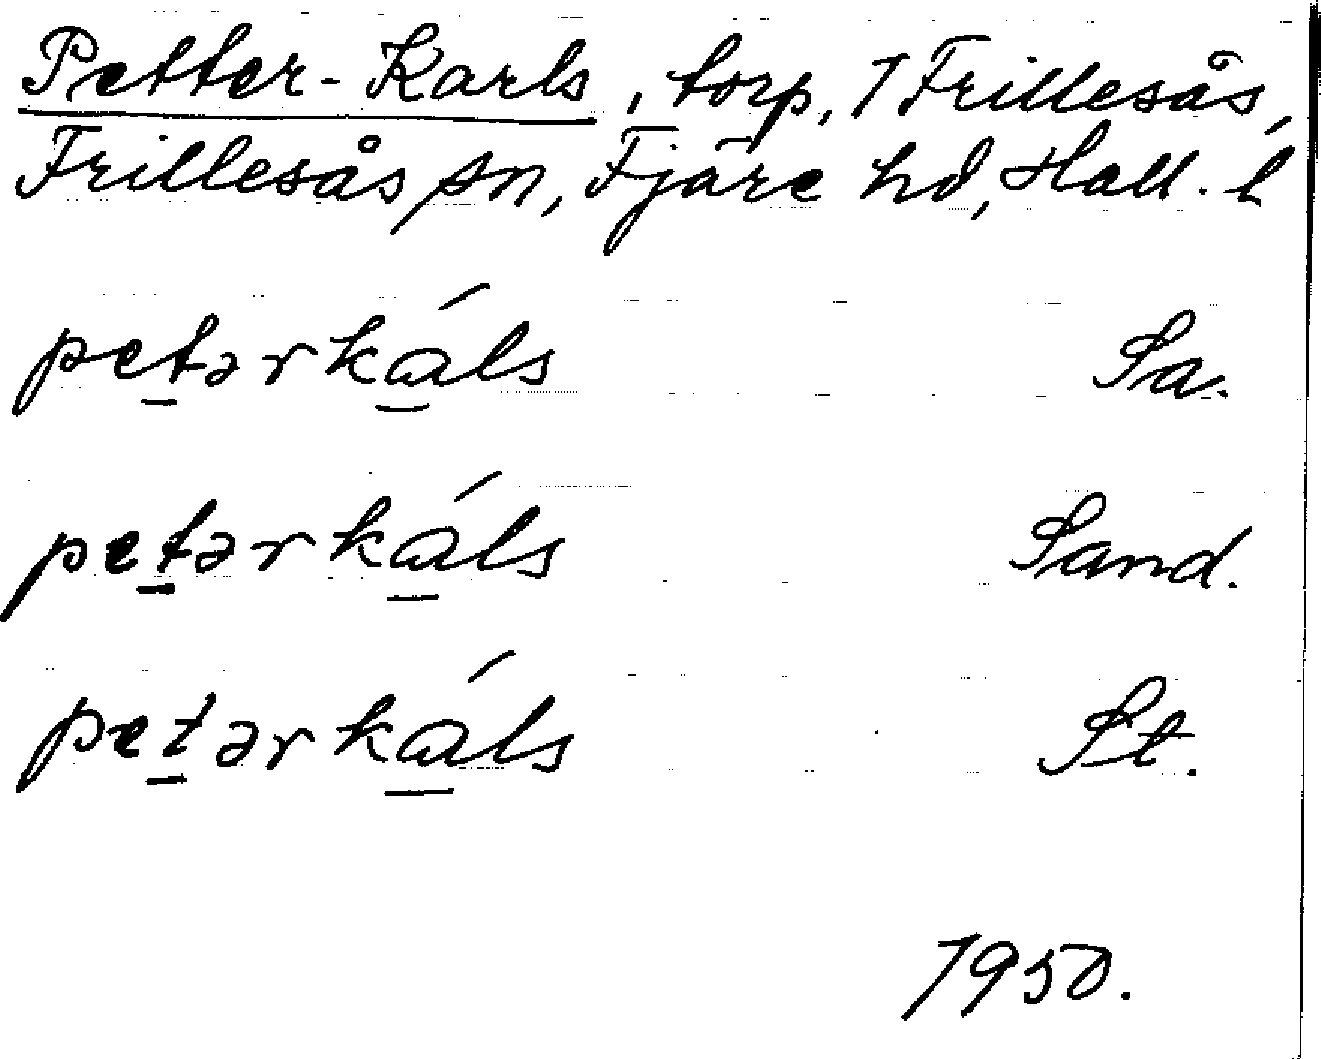 Petter-Karls, torp, 1 Frillesås,
Frillesås sn, Fjäre hd, Hall. l
pet̲ərká̲ls Sa.
pet̲ərká̲ls Sand.
pet̲ərká̲ls St.
1950.